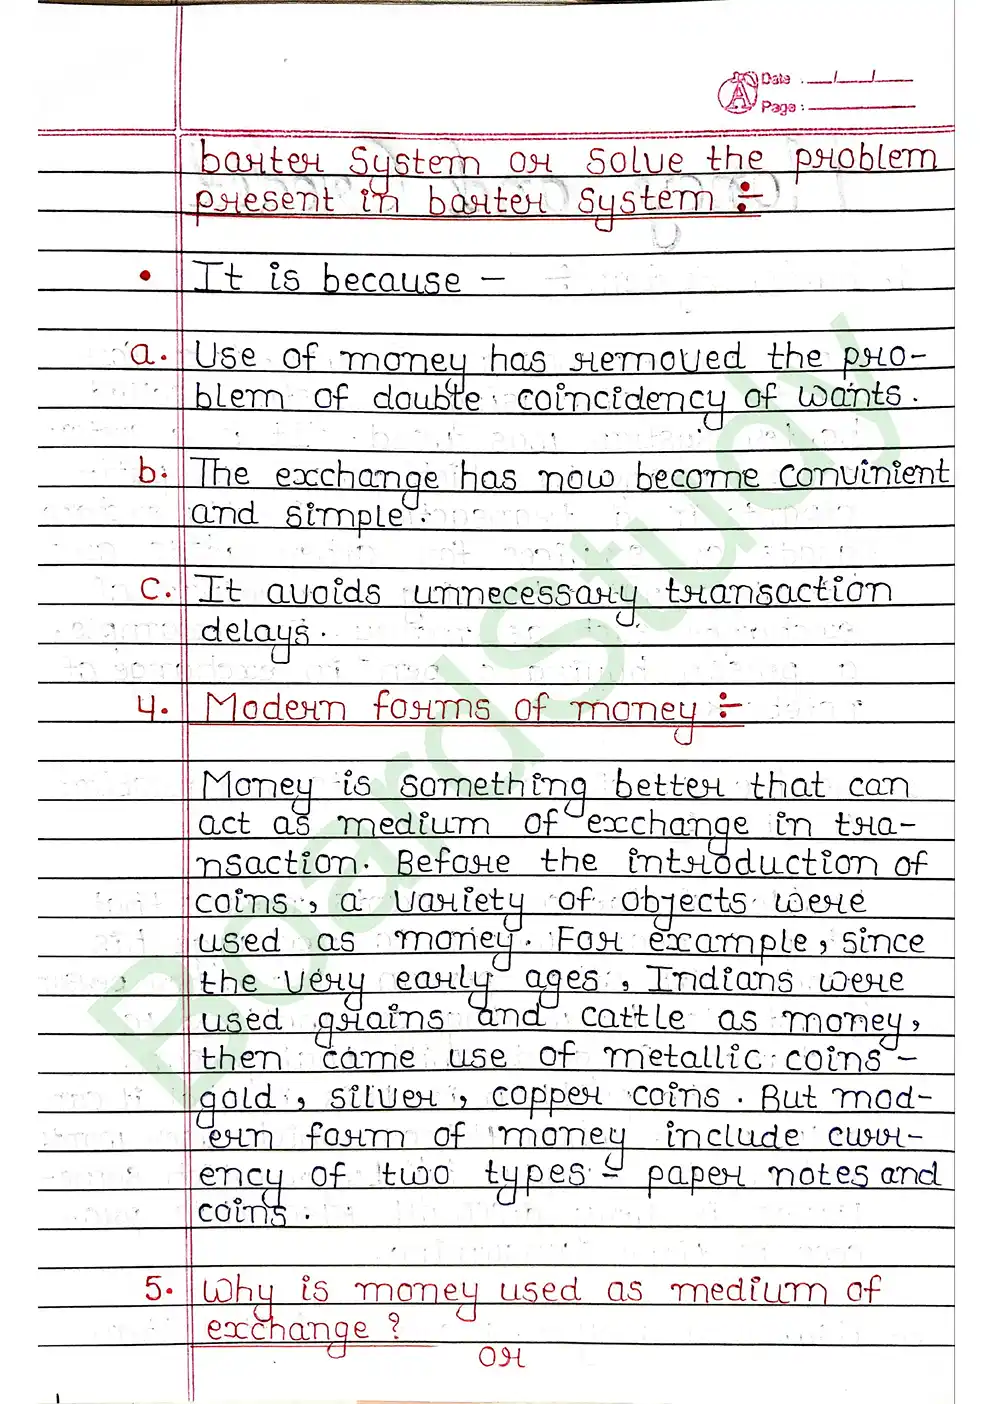 Date : __/__/__
Page :
barter System or Solve the problem
present in barter System ÷
• It is because –
a. Use of money has removed the pro-
blem of double coincidency of wants.
b. The exchange has now become convinient
and simple.
c. It avoids unnecessary transaction
delays.
4. Modern forms of money ÷
Money is something better that can
act as medium of exchange in tra-
nsaction. Before the introduction of
coins, a variety of objects were
used as money. For example, since
the very early ages, Indians were
used grains and cattle as money,
then came use of metallic coins –
gold, silver, copper coins. But mod-
ern form of money include curr-
ency of two types – paper notes and
coins.
5. Why is money used as medium of
exchange?
or
BoardStudy